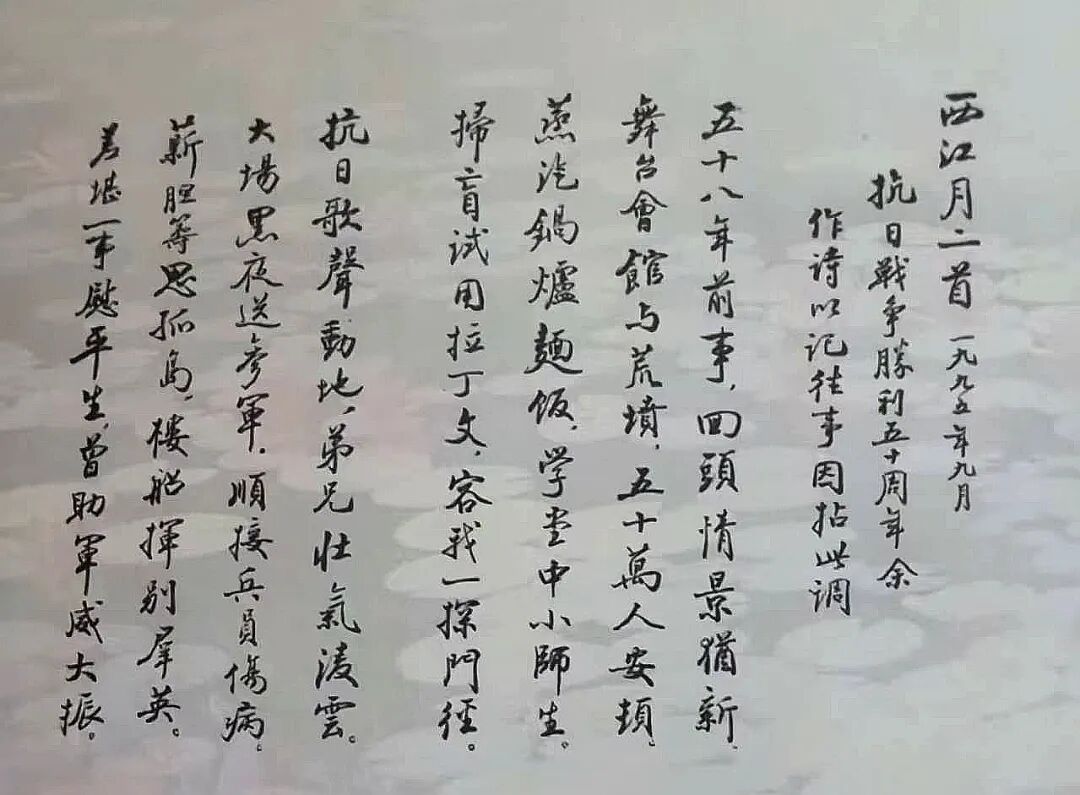 西江月二首 一九九五年九月
抗日戰争勝利五十周年余
作诗以记往事因拈此调
五十八年前事，回頭情景猶新，
舞台會館与荒墳，五十萬人安頓。
蒸汽鍋爐麵饭，学堂中小師生。
掃盲试用拉丁文，容我一探門徑。
抗日歌聲動地，弟兄壮氣凌雲。
大場黑夜送参軍，順接兵員傷病。
薪胆等思孤岛，楼船揮别羣英。
差堪一事慰平生，曾助軍威大振。